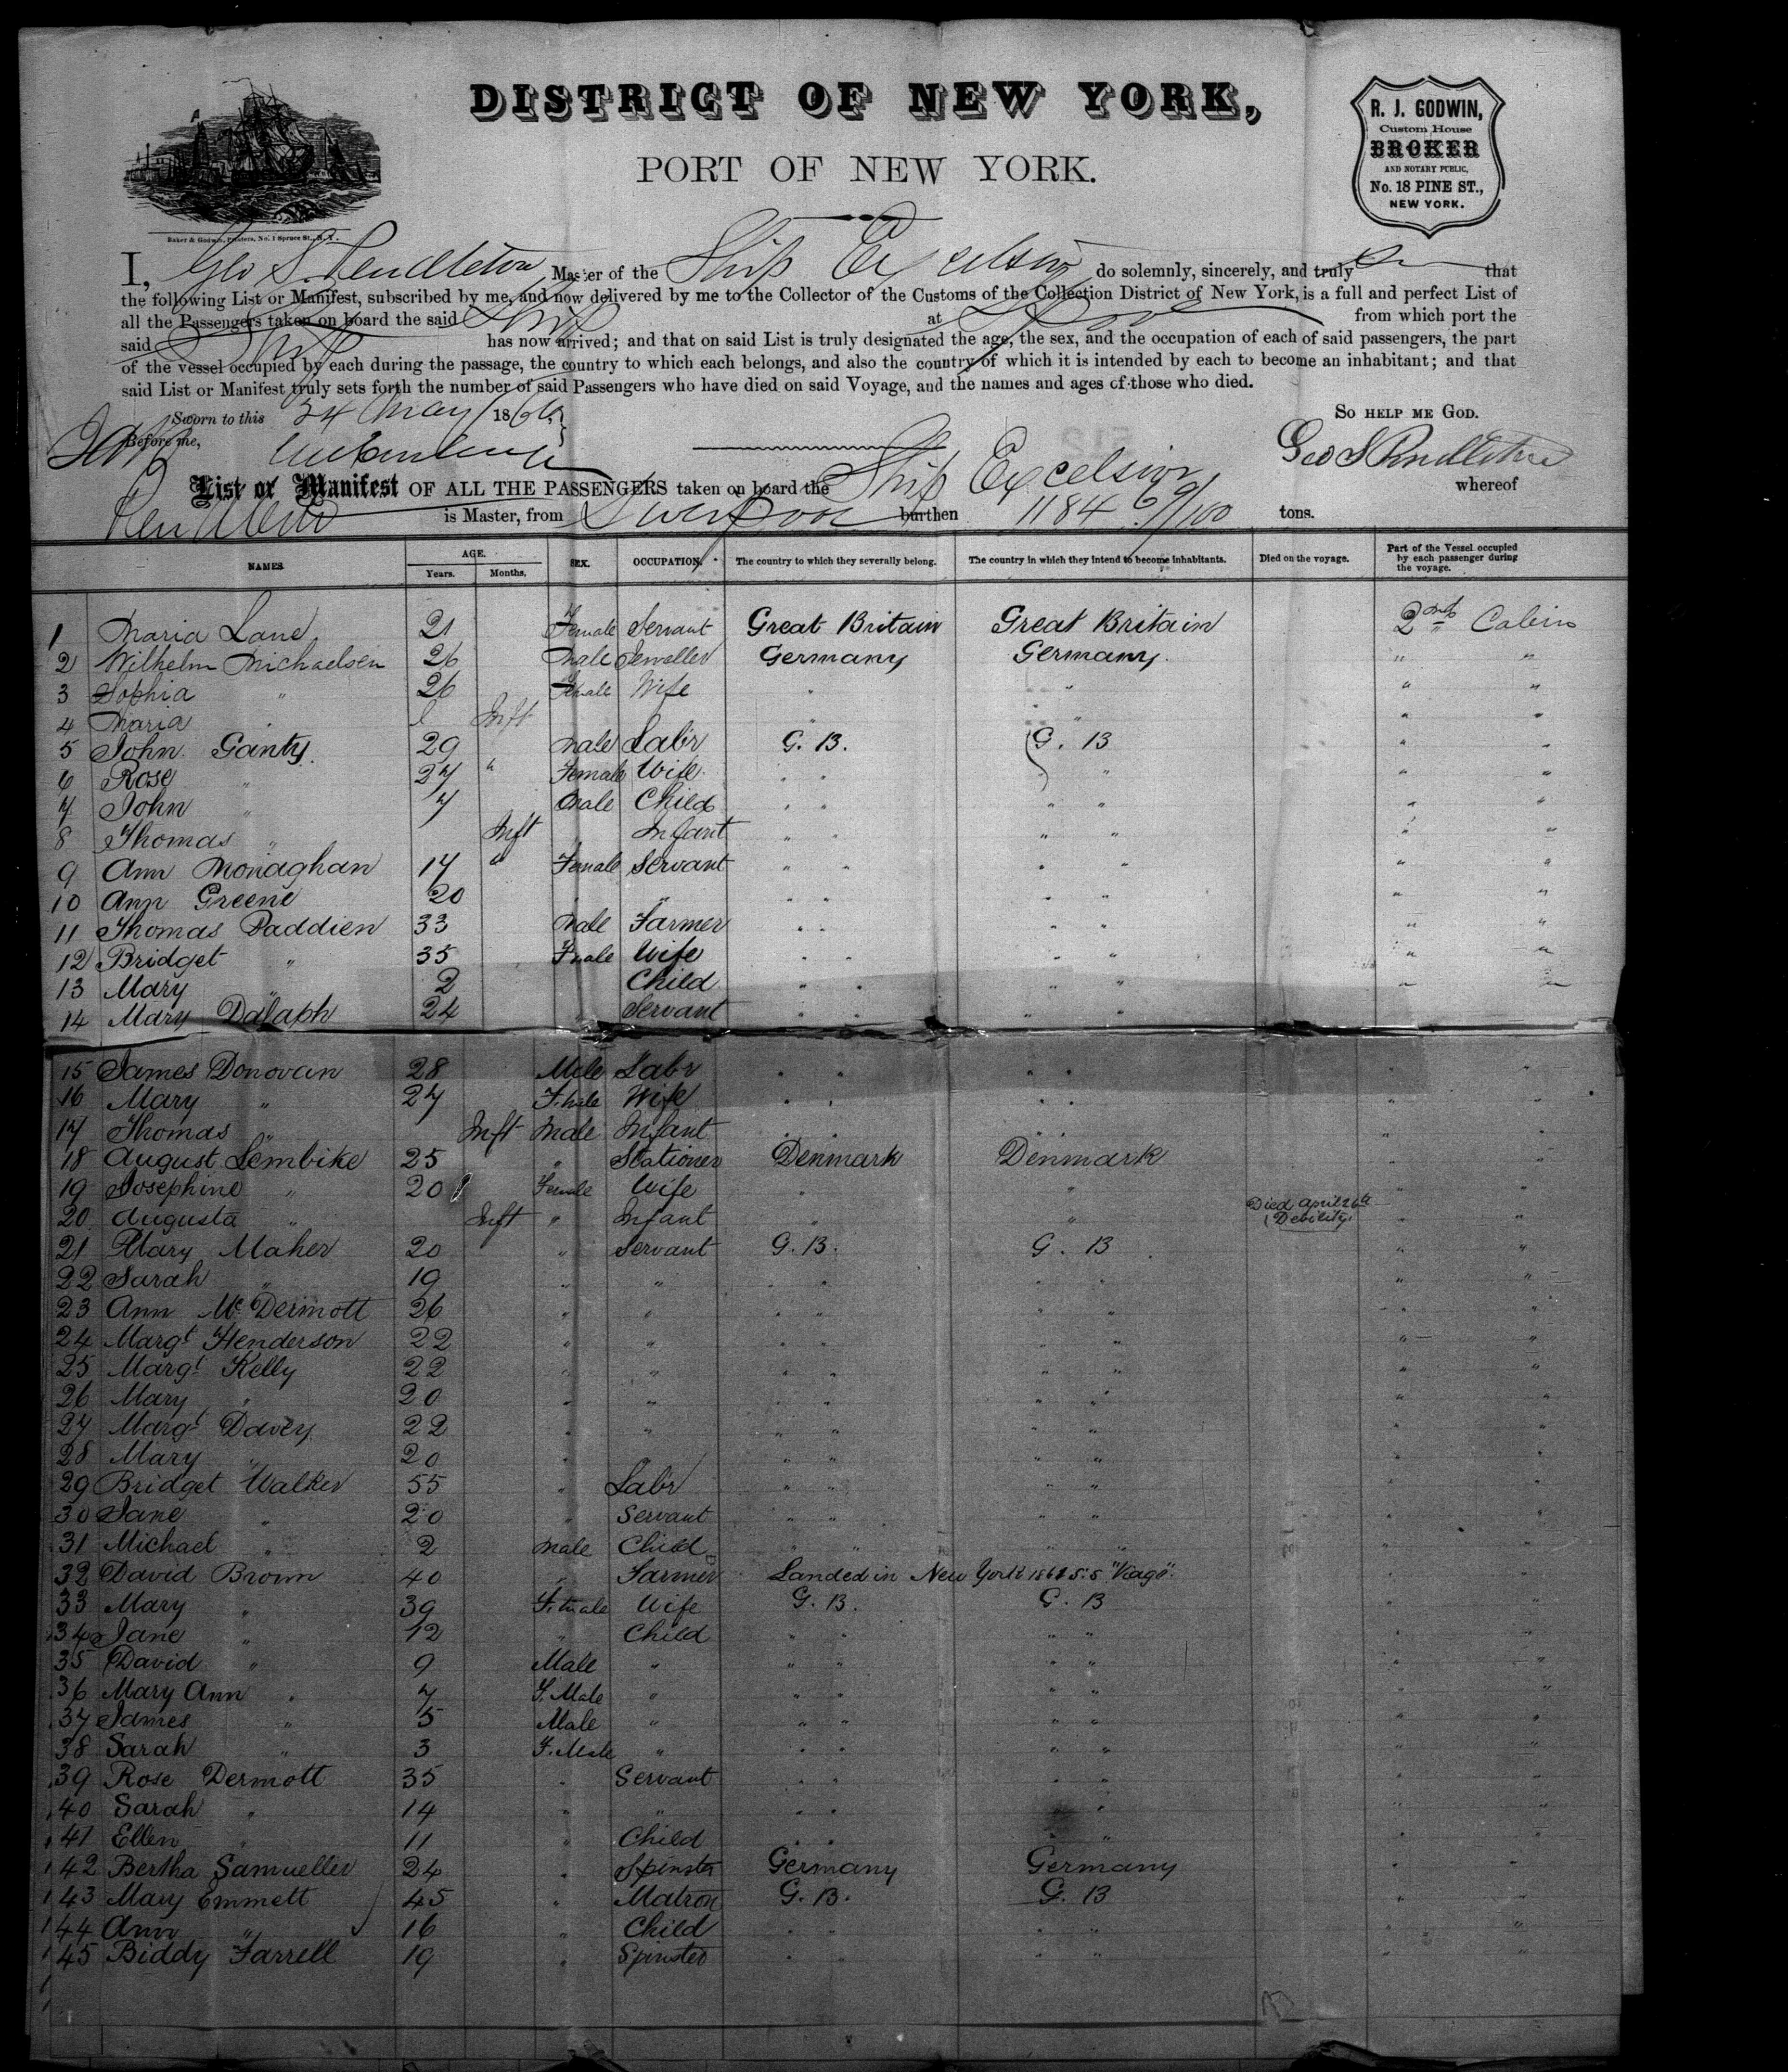 DISTRICT OF NEW YORK,
PORT OF NEW YORK.
R. J. GODWIN,
Custom House
BROKER
AND NOTARY PUBLIC,
No. 18 PINE ST.,
NEW YORK.
Baker & Godwin, Printers, No. 1 Spruce St., N. Y.
I, Geo S. Pendleton Master of the Ship Excelsior do solemnly, sincerely, and truly that
the following List or Manifest, subscribed by me, and now delivered by me to the Collector of the Customs of the Collection District of New York, is a full and perfect List of
all the Passengers taken on board the said Ship at L'pool from which port the
said Ship has now arrived; and that on said List is truly designated the age, the sex, and the occupation of each of said passengers, the part
of the vessel occupied by each during the passage, the country to which each belongs, and also the country of which it is intended by each to become an inhabitant; and that
said List or Manifest truly sets forth the number of said Passengers who have died on said Voyage, and the names and ages of those who died.
Sworn to this 24 May 1866 So HELP ME GOD.
Before me,
Geo S Pendleton
List or Manifest OF ALL THE PASSENGERS taken on board the Ship Excelsior whereof
Pendleton is Master, from Liverpool burthen 1184 69/100 tons.
NAMES. AGE. Years. Months. SEX. OCCUPATION. The country to which they severally belong. The country in which they intend to become inhabitants. Died on the voyage. Part of the Vessel occupied by each passenger during the voyage.
1 Maria Lane 21 Female Servant Great Britain Great Britain 2nd Cabin
2 Wilhelm Michaelsen 26 Male Jeweller Germany Germany " "
3 Sophia " 26 Female Wife " " " "
4 Maria " Inft " " " "
5 John Ganty 29 Male Labr G. B. G. B " "
6 Rose " 27 " Female Wife " " " " " "
7 John " 7 Male Child " " " " " "
8 Thomas " Inft " Infant " " " " " "
9 Ann Monaghan 17 " Female Servant " " " " " "
10 Ann Greene 20 " " " " " " " "
11 Thomas Paddien 33 Male Farmer " " " " " "
12 Bridget " 35 Fmale Wife " " " " " "
13 Mary " 2 Child " " " " " "
14 Mary Dalaph 24 " Servant " " " "
15 James Donovan 28 Male Labr " " " " " "
16 Mary " 27 F.male Wife " " " " " "
17 Thomas " Inft Male Infant " " " " " "
18 August Lembike 25 " Stationer Denmark Denmark " "
19 Josephine " 20 Female Wife " " " "
20 Augusta " Inft " Infant " " Died April 26th (Debility) " "
21 Mary Maher 20 " Servant G. B. G. B " "
22 Sarah " 19 " " " " " " " "
23 Ann McDermott 26 " " " " " " " "
24 Margt Henderson 22 " " " " " " " "
25 Margt Kelly 22 " " " " " " " "
26 Mary " 20 " " " " " " " "
27 Margt Davey 22 " " " " " " " "
28 Mary " 20 " " " " " " " "
29 Bridget Walker 55 " Labr " " " " " "
30 Jane " 20 " Servant " " " " " "
31 Michael " 2 Male Child " " " " " "
32 David Brown 40 " Farmer Landed in New York S.S " "
33 Mary " 39 F.male Wife G. B. G. B " "
34 Jane " 12 " Child " " " " " "
35 David " 9 Male " " " " " " "
36 Mary Ann " 7 F.Male " " " " " " "
37 James " 5 Male " " " " " " "
38 Sarah " 3 F.Male " " " " " " "
39 Rose Dermott 35 " Servant " " " " " "
40 Sarah " 14 " " " " " " "
41 Ellen " 11 " Child " " " " "
42 Bertha Samueller 24 " Spinster Germany Germany " "
43 Mary Emmett 45 " Matron G. B. G. B " "
44 Ann " 16 " Child " " " " " "
45 Biddy Farrell 19 " Spinster " " " " " "